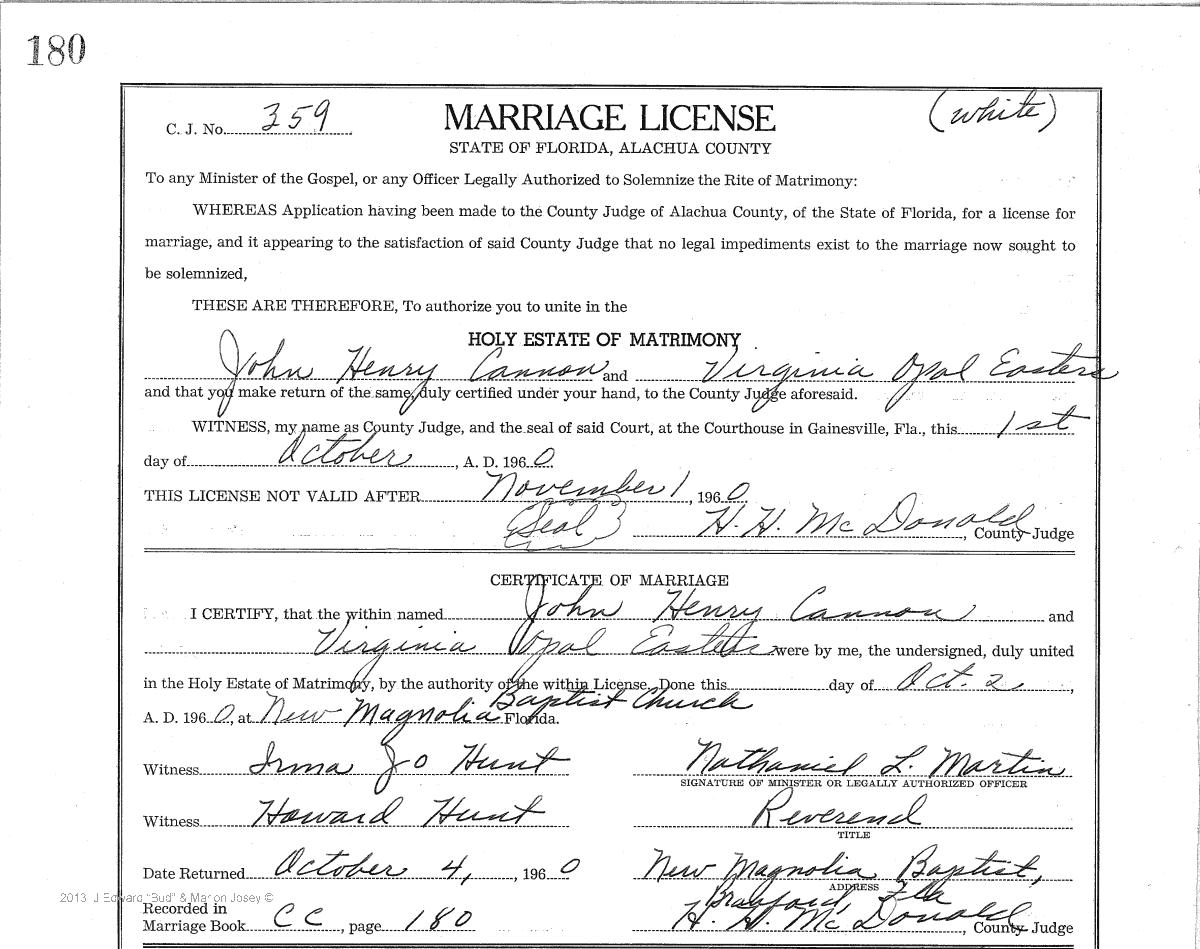 180
C. J. No. 359 MARRIAGE LICENSE (white)
STATE OF FLORIDA, ALACHUA COUNTY
To any Minister of the Gospel, or any Officer Legally Authorized to Solemnize the Rite of Matrimony:
WHEREAS Application having been made to the County Judge of Alachua County, of the State of Florida, for a license for
marriage, and it appearing to the satisfaction of said County Judge that no legal impediments exist to the marriage now sought to
be solemnized,
THESE ARE THEREFORE, To authorize you to unite in the
HOLY ESTATE OF MATRIMONY
John Henry Cannon and Virginia Opal Easters
and that you make return of the same, duly certified under your hand, to the County Judge aforesaid.
WITNESS, my name as County Judge, and the seal of said Court, at the Courthouse in Gainesville, Fla., this 1st
day of October, A. D. 1960
THIS LICENSE NOT VALID AFTER November 1, 1960
(Seal) H. H. McDonald, County Judge
CERTIFICATE OF MARRIAGE
I CERTIFY, that the within named John Henry Cannon and
Virginia Opal Easters were by me, the undersigned, duly united
in the Holy Estate of Matrimony, by the authority of the within License. Done this day of Oct. 2,
A. D. 1960, at New Magnolia Baptist Church Florida.
Witness Irma Jo Hunt Nathaniel L. Martin
SIGNATURE OF MINISTER OR LEGALLY AUTHORIZED OFFICER
Witness Howard Hunt Reverend
TITLE
Date Returned October 4, , 1960 New Magnolia Baptist,
ADDRESS
Bradford, Fla
2013 J Edward "Bud" & Marion Josey ©
Recorded in
Marriage Book CC, page 180 H. H. McDonald, County Judge